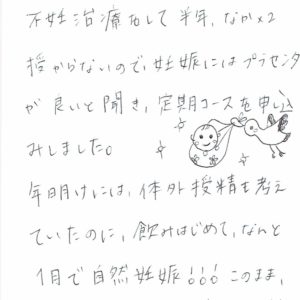 不妊治療をして半年、なか×2
授からないので、妊娠にはプラセンタ
が良いと聞き、定期コースを申し込
みしました。
年明けには、体外授精も考え
ていたのに、飲みはじめて、なんと
1月で自然妊娠!!! このまま、